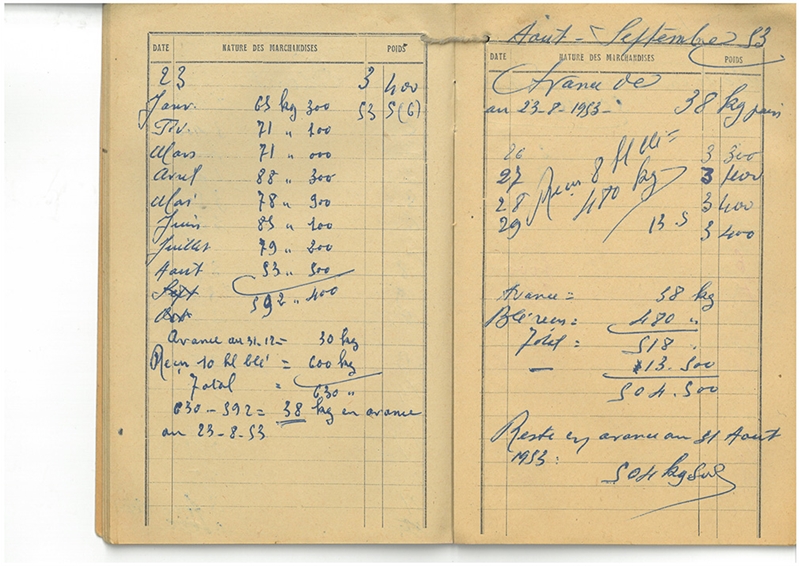 DATE NATURE DES MARCHANDISES POIDS
23 3 400
Janv. 65 kg 300 53 5(6)
Fév. 71 " 200
Mars 71 " 000
Avril 88 " 300
Mai 78 " 900
Juin 85 " 100
Juillet 79 " 200
Aout 53 " 500
Sept 592 " 400
Oct
Avance au 31-12 = 30 kg
Reçu 10 hl blé = 600 kg
Total = 630 "
630 - 592 = 38 kg en avance
au 23-8-53
Août - Septembre 53
DATE NATURE DES MARCHANDISES POIDS
Avance de
au 23-8-1953- 38 kg pain
26 3 300
27 Reçu 8 hl blé = 3 400
28 480 kg 3 400
29 13.5 3 400
Avance = 38 kg
Blé reçu = 480 "
Total = 518
- 13.500
504.500
Reste en avance au 31 Aout
1953: 504 kg 500